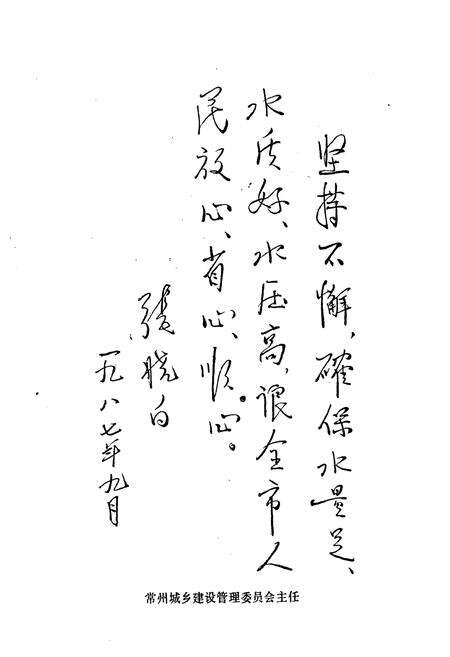 坚持不懈，確保水量足、
水质好、水压高，让全市人
民放心、省心、顺心。
張晓白
一九八七年九月
常州城乡建设管理委员会主任